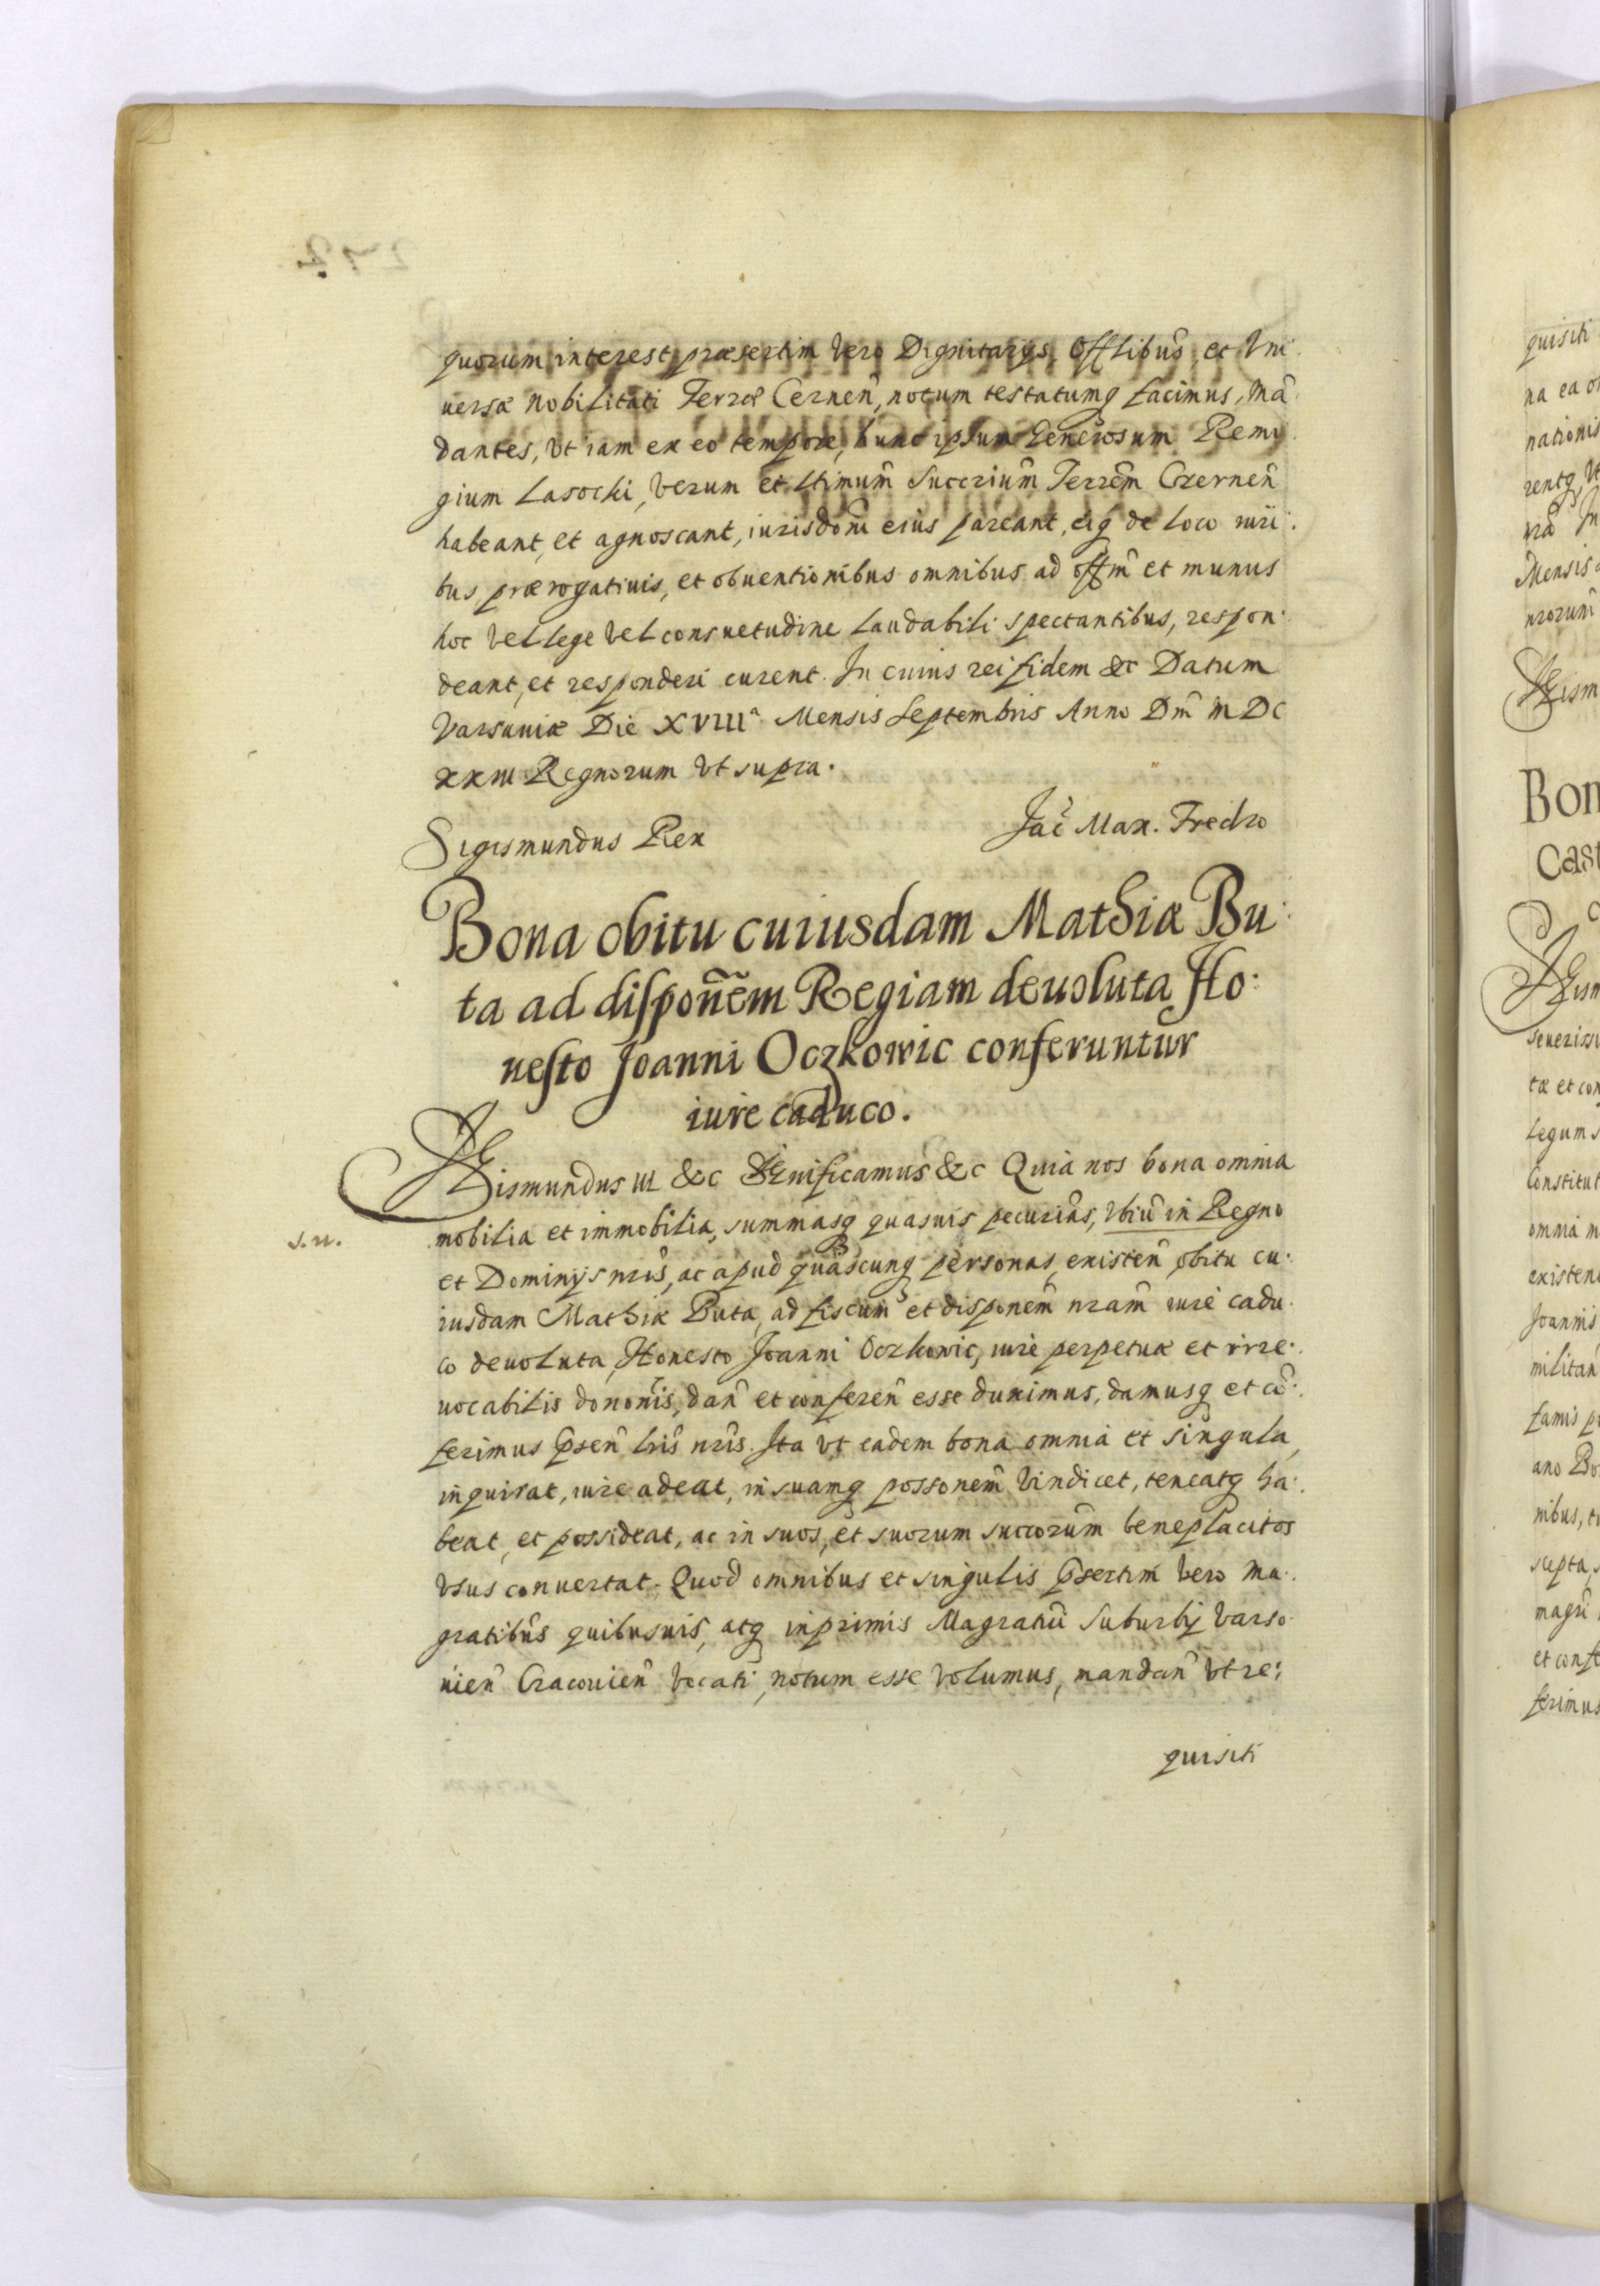 quorum interest, præsertim vero Dignitarijs, Offlibus̃, et Vni
uersæ Nobilitati Terræ Cernen̄, notum testatumq facimus, Mā
dantes, vt iam ex eo tempore, hunc ipsum Generosum Remi
gium Lasocki, verum et Ltimum̃ Succrium̃ Terrem̃ Czernen̄
habeant, et agnoscant, iurisdom̃ eius pareant, eiq de loco iuri
bus, prærogatiuis, et obuentionibus omnibus ad offm̃ et munus
hoc vel lege vel consuetudine laudabili spectantibus, respon
deant, et responderi curent. In cuius rei fidem &c Datum
Varsauiæ Die XVIIIa Mensis Septembris Anno Dm̃ MDC
xxiii Regnorum vt supra.
Sigismundus Rex
Jac̃ Max. Fredro
Bona obitu cuiusdam Mathiæ Bu
ta ad disponẽm Regiam deuoluta Ho
nesto Joanni Oczkowic conferuntur
iure caduco.
Sigismundus III &c Significamus &c Quia nos bona omnia
mobilia et immobilia, summasq quasuis pecurias̃, vbiuĩ in Regno
s.n.
et Dominijs nris̃, ac apud quascunq personas, existen̄ obitu cu
iusdam Mathiæ Buta, ad fiscum et disponem̃ nram̃ iure cadu
co deuoluta, Honesto Joanni Oczkowic, iure perpetuæ et irre
uocabilis dononis̃, dan̄ et conferen̄ esse duximus, damusq et cō
ferimus Psen̄ lris̃ nris̃. Ita vt eadem bona omnia et singula
inquirat, iure adeat, in suamq possonem̃ vindicet, teneatq ha
beat, et possideat, ac in suos, et suorum succorum̃ beneplacitos
vsus conuertat. Quod omnibus et singulis Psertim vero Ma
gratibus̃ quibusuis, atq inprimis Magratui Suburbij Varso
uien̄ Cracouien̄ vocati, notum esse volumus, mandan̄ vt re
quisiti